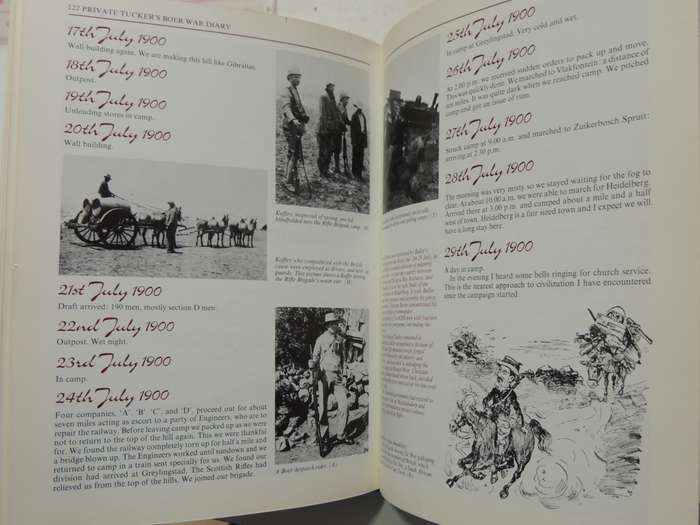 122 PRIVATE TUCKER'S BOER WAR DIARY
17th July 1900
Wall building again. We are making this hill like Gibraltar.
18th July 1900
Outpost.
19th July 1900
Unloading stores in camp.
20th July 1900
Wall building.
21st July 1900
Draft arrived: 190 men, mostly section D men.
22nd July 1900
Outpost. Wet night.
23rd July 1900
In camp.
24th July 1900
Four companies, 'A', 'B' 'C', and 'D', proceed out for about
seven miles acting as escort to a party of Engineers, who are to
repair the railway. Before leaving camp we packed up as we were
not to return to the top of the hill again. This we were thankful
for. We found the railway completely torn up for half a mile and
a bridge blown up. The Engineers worked until sundown and we
returned to camp in a train sent specially for us. We found our
division had arrived at Greylingstad. The Scottish Rifles had
relieved us from the top of the hills. We joined our brigade.
Kaffirs, suspected of spying, are led
blindfolded into the Rifle Brigade camp.
Kaffirs who sympathized with the British
cause were employed as drivers, and
guards. This picture shows a Kaffir
the Rifle Brigade's water cart.
A Boer despatch rider.
25th July 1900
In camp at Greylingstad. Very cold and wet.
26th July 1900
At 2.00 p.m. we received sudden orders to pack up and move.
This was quickly done. We marched to Vlakfontein: a distance of
ten miles. It was quite dark when we reached camp. We pitched
camp and got an issue of rum.
27th July 1900
Struck camp at 9.00 a.m. and marched to Zuikerbosch Spruit:
arriving at 2.30 p.m.
28th July 1900
The morning was very misty so we stayed waiting for the fog to
clear. At about 10.00 a.m. we were able to march for Heidelberg.
Arrived there at 3.00 p.m. and camped about a mile and a half
west of town. Heidelberg is a fair sized town and I expect we will
have a long stay here.
29th July 1900
A day in camp.
In the evening I heard some bells ringing for church service.
This is the nearest approach to civilization I have encountered
since the campaign started.